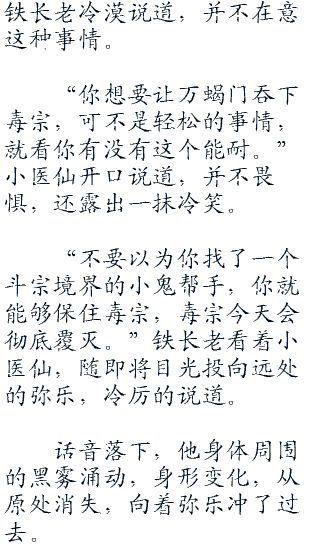 铁长老冷漠说道，并不在意
这种事情。
“你想要让万蝎门吞下
毒宗，可不是轻松的事情，
就看你有没有这个能耐。”
小医仙开口说道，并不畏
惧，还露出一抹冷笑。
“不要以为你找了一个
斗宗境界的小鬼帮手，你就
能够保住毒宗，毒宗今天会
彻底覆灭。”铁长老看着小
医仙，随即将目光投向远处
的弥乐，冷厉的说道。
话音落下，他身体周围
的黑雾涌动，身形变化，从
原处消失，向着弥乐冲了过
去。